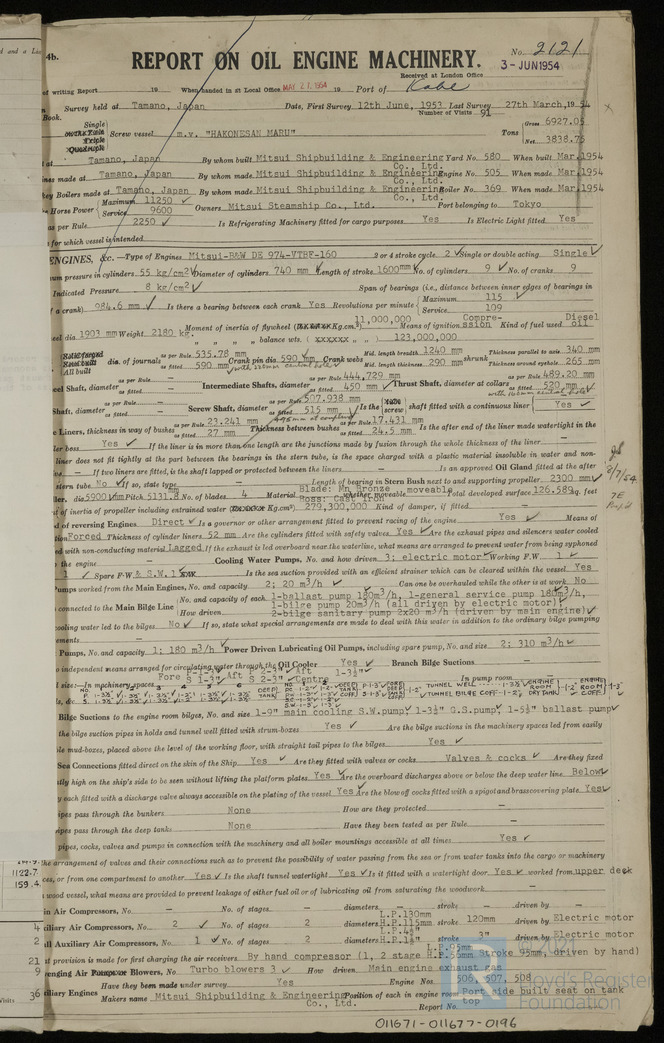 4b.
REPORT ON OIL ENGINE MACHINERY.
No. 2121
3 - JUN 1954
Received at London Office
of writing Report 19 When handed in at Local Office MAY 21 1954 19 Port of Kobe
Survey held at Tamano, Japan Date, First Survey 12th June, 1953 Last Survey 27th March, 1954
Book. Number of Visits 91
Single
Triple
Quadruple
Screw vessel m.v. "HAKONESAN MARU" Tons Gross 6927.05
Net 3838.76
at Tamano, Japan By whom built Mitsui Shipbuilding & Engineering Co., Ltd. Yard No. 580 When built Mar. 1954
ines made at Tamano, Japan By whom made Mitsui Shipbuilding & Engineering Co., Ltd. Engine No. 505 When made Mar. 1954
key Boilers made at Tamano, Japan By whom made Mitsui Shipbuilding & Engineering Co., Ltd. Boiler No. 369 When made Mar. 1954
Horse Power Maximum 11250 Service 9600 Owners Mitsui Steamship Co., Ltd. Port belonging to Tokyo
as per Rule 2250 Is Refrigerating Machinery fitted for cargo purposes Yes Is Electric Light fitted Yes
for which vessel is intended
ENGINES, &c. —Type of Engines Mitsui-B&W DE 974-VTBF-160 2 or 4 stroke cycle 2 Single or double acting Single
um pressure in cylinders 55 kg/cm2 Diameter of cylinders 740 mm Length of stroke 1600 mm No. of cylinders 9 No. of cranks 9
Indicated Pressure 8 kg/cm2 Span of bearings (i.e., distance between inner edges of bearings in
Maximum 115
a crank) 984.6 mm Is there a bearing between each crank Yes Revolutions per minute Service 109
11,000,000 Compre- Diesel
eel dia 1903 mm Weight 2180 kg. Moment of inertia of flywheel ( Kg.cm2) Means of ignition ssion Kind of fuel used oil
" " " balance wts. ( xxxxxx ) 123,000,000
All built dia. of journals as per Rule 535.78 mm as fitted 590 mm Crank pin dia. 590 mm Crank webs Mid. length breadth 1240 mm Mid. length thickness 290 mm shrunk Thickness parallel to axis 340 mm Thickness around eyehole 265 mm
with 120mm central hole
eel Shaft, diameter as per Rule — as fitted — Intermediate Shafts, diameter as per Rule 444.729 mm as fitted 450 mm Thrust Shaft, diameter at collars as per Rule 489.20 mm as fitted 520 mm
with 160mm central hole
Shaft, diameter as per Rule — as fitted — Screw Shaft, diameter as per Rule 507.938 mm as fitted 515 mm Is the screw shaft fitted with a continuous liner Yes
e Liners, thickness in way of bushes as per Rule 23.241 mm as fitted 27 mm Thickness between bushes as per Rule 17.431 mm as fitted 24.5 mm Is the after end of the liner made watertight in the
ler boss Yes If the liner is in more than one length are the junctions made by fusion through the whole thickness of the liner —
liner does not fit tightly at the part between the bearings in the stern tube, is the space charged with a plastic material insoluble in water and non-
— If two liners are fitted, is the shaft lapped or protected between the liners — Is an approved Oil Gland fitted at the after
stern tube. No If so, state type — Length of bearing in Stern Bush next to and supporting propeller 2300 mm
ler, dia 5900 mm Pitch 5131.8 mm No. of blades 4 Material Blade: Mn Bronze Boss: Cast iron whether moveable moveable Total developed surface 126.589 sq. feet
of inertia of propeller including entrained water ( Kg.cm2) 279,300,000 Kind of damper, if fitted —
d of reversing Engines Direct Is a governor or other arrangement fitted to prevent racing of the engine Yes Means of
tion Forced Thickness of cylinder liners 52 mm Are the cylinders fitted with safety valves Yes Are the exhaust pipes and silencers water cooled
ed with non-conducting material Lagged If the exhaust is led overboard near the waterline, what means are arranged to prevent water from being syphoned
the engine — Cooling Water Pumps, No. and how driven 3; electric motor Working F.W. 1
1 Spare F.W. & S.W. 1 Is the sea suction provided with an efficient strainer which can be cleared within the vessel Yes
umps worked from the Main Engines, No. and capacity 2; 20 m3/h Can one be overhauled while the other is at work No
connected to the Main Bilge Line No. and capacity of each 1-ballast pump 180m3/h, 1-general service pump 180m3/h,
1-bilge pump 20m3/h (all driven by electric motor)
How driven 2-bilge sanitary pump 2x20 m3/h (driven by main engine)
ooling water led to the bilges No If so, state what special arrangements are made to deal with this water in addition to the ordinary bilge pumping
ements —
Pumps, No. and capacity 1; 180 m3/h Power Driven Lubricating Oil Pumps, including spare pump, No. and size 2; 310 m3/h
o independent means arranged for circulating water through the Oil Cooler Yes Branch Bilge Suctions —
l size:—In machinery spaces Fore Aft Aft Centre In pump room —
Bilge Suctions to the engine room bilges, No. and size 1-9" main cooling S.W.pump, 1-3½" G.S.pump, 1-5½" ballast pump
the bilge suction pipes in holds and tunnel well fitted with strum-boxes Yes Are the bilge suctions in the machinery spaces led from easily
le mud-boxes, placed above the level of the working floor, with straight tail pipes to the bilges Yes
Sea Connections fitted direct on the skin of the Ship Yes Are they fitted with valves or cocks Valves & cocks Are they fixed
tly high on the ship's side to be seen without lifting the platform plates Yes Are the overboard discharges above or below the deep water line Below
y each fitted with a discharge valve always accessible on the plating of the vessel Yes Are the blow off cocks fitted with a spigot and brass covering plate Yes
ipes pass through the bunkers None How are they protected —
ipes pass through the deep tanks None Have they been tested as per Rule —
pipes, cocks, valves and pumps in connection with the machinery and all boiler mountings accessible at all times Yes
the arrangement of valves and their connections such as to prevent the possibility of water passing from the sea or from water tanks into the cargo or machinery
ces, or from one compartment to another Yes Is the shaft tunnel watertight Yes Is it fitted with a watertight door Yes worked from upper deck
wood vessel, what means are provided to prevent leakage of either fuel oil or lubricating oil from saturating the woodwork —
in Air Compressors, No. — No. of stages — diameters — stroke — driven by —
iliary Air Compressors, No. 2 No. of stages 2 diameters L.P.130mm H.P.115mm stroke 120mm driven by Electric motor
ll Auxiliary Air Compressors, No. 1 No. of stages 2 diameters stroke 3" driven by Electric motor
t provision is made for first charging the air receivers By hand compressor (1, 2 stage L.P.95mm H.P.56mm Stroke 95mm, driven by hand)
enging Air Blowers, No. Turbo blowers 3 How driven Main engine exhaust gas
iliary Engines Have they been made under survey Yes Engine Nos. 506, 507, 508
Makers name Mitsui Shipbuilding & Engineering Co., Ltd. Position of each in engine room Port side built seat on tank top
Report No.
1122.7
159.4
4
2
21
9
Visits 36
Lloyd's Register
Foundation
011671-011677-0196